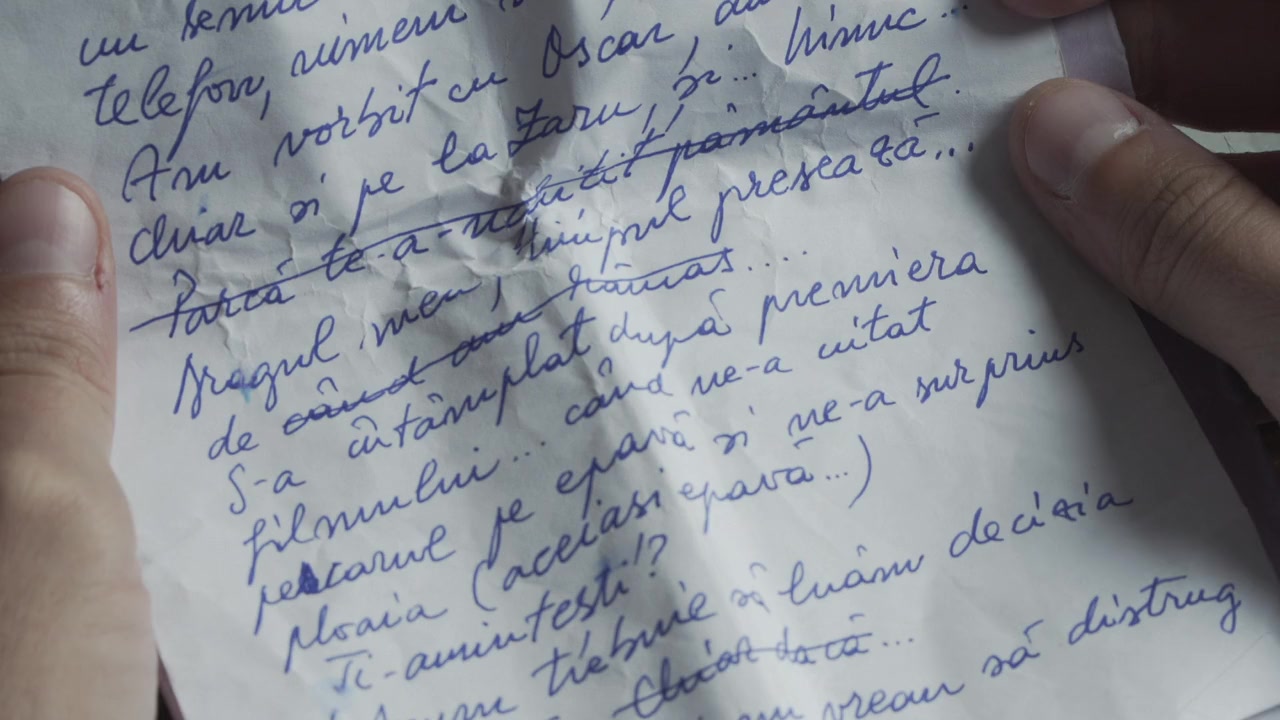 un semn
telefon, nimeni
Am vorbit cu Oscar,
chiar și pe la Zaru, și... nimic...
Parcă te-a înghițit pământul.
Dragul meu, timpul presează...
de când am rămas....
S-a întâmplat după premiera
filmului... când ne-a uitat
pescarul pe epavă și ne-a surprins
ploaia (aceiasi epavă...)
Ti-amintesti!?
trebuie să luăm decizia
Chiar dacă...
vreau să distrug